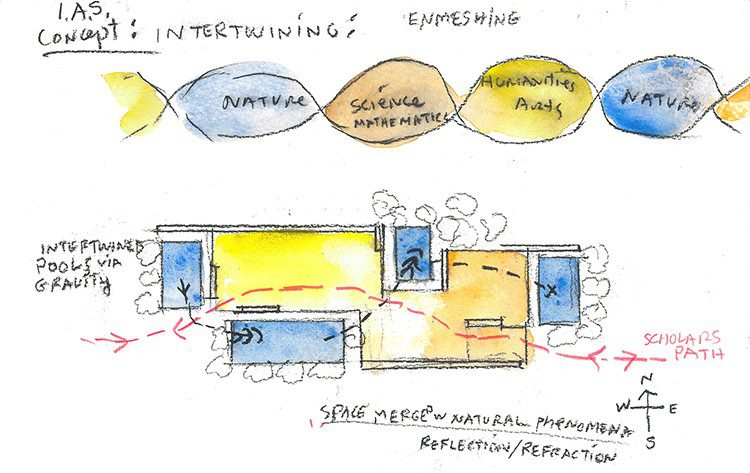 I.A.S.
CONCEPT: INTERTWINING: ENMESHING
NATURE
SCIENCE
MATHEMATICS
HUMANITIES
ARTS
NATURE
INTERTWINED
POOLS VIA
GRAVITY
SCHOLARS
PATH
N
W E
S
SPACE MERGE W NATURAL PHENOMENA
REFLECTION/REFRACTION